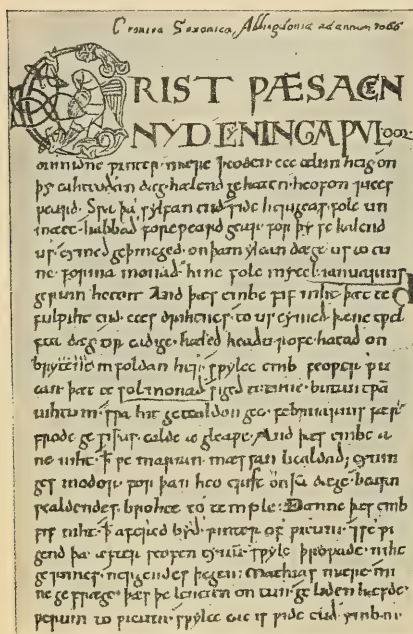 Cronica Saxonica, Abbingdoniæ ad annum 1066
CRIST ǷÆS ACEN
NYD CYNINGA ǷUL DOR
on midne ƿinter mære þeoden ece ælmihtig on
þy eahteoðan dæg hælend gehaten heofon rices
ƿeard. Sƿa þa sylfan tiid side herigeas folc un
mæte habbað foreƿeard gear for þy se kalend
us cymeð geþincged on þam ylcan dæge us to tu
ne forma monað hine folc mycel ianuarius
gerum heton And þæs embe fif niht þæt te
fulƿiht tiid eces drihtnes to us cymeð þæne tƿel
fta dæg tir eadige hæleð heaðu rofe hatað on
brytene in foldan her sƿylce emb feoƿer ƿu
can þæt te solmonað sigeð to tune butan tƿam
nihtum sƿa hit getealdon geo februarius fær
frode ge siþas ealde æ gleaƿe And þæs embe a
ne niht ꝥ ƿe marian mæssan healdað cynin
ges modor for þan heo crist on þam dæge bearn
ƿealdendes brohte to temple Ðænne þæs emb
fif niht ꝥ afered byð ƿinter of ƿicum se ƿi
gend þa æfter seofentynum sƿylc þroƿade niht
gerimes nergendes þegen mathias mære mi
ne ge fræge þæs þe lencten on tun ge liden hæfde
ƿerum to ƿicum sƿylce eac is ƿide cuð